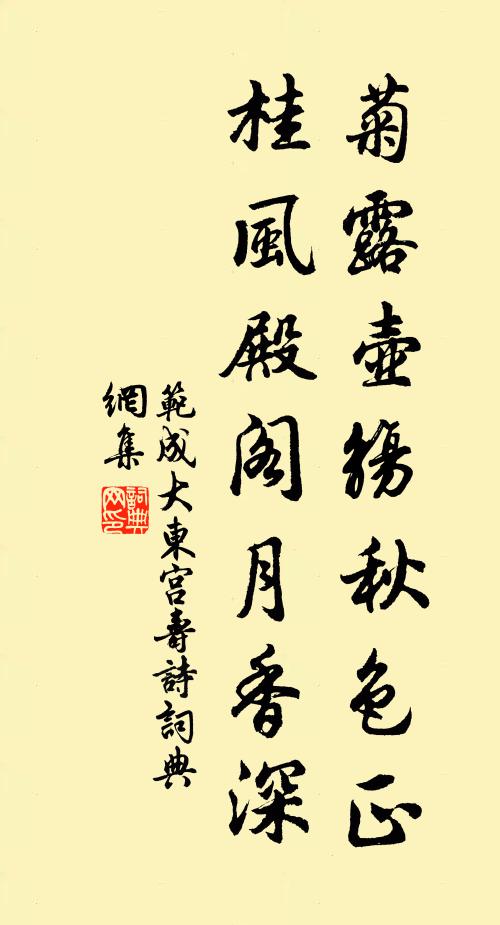 菊露壺觴秋色正
桂風殿阁月香深
範成大東宫壽詩詞典
網集
詞典
网印